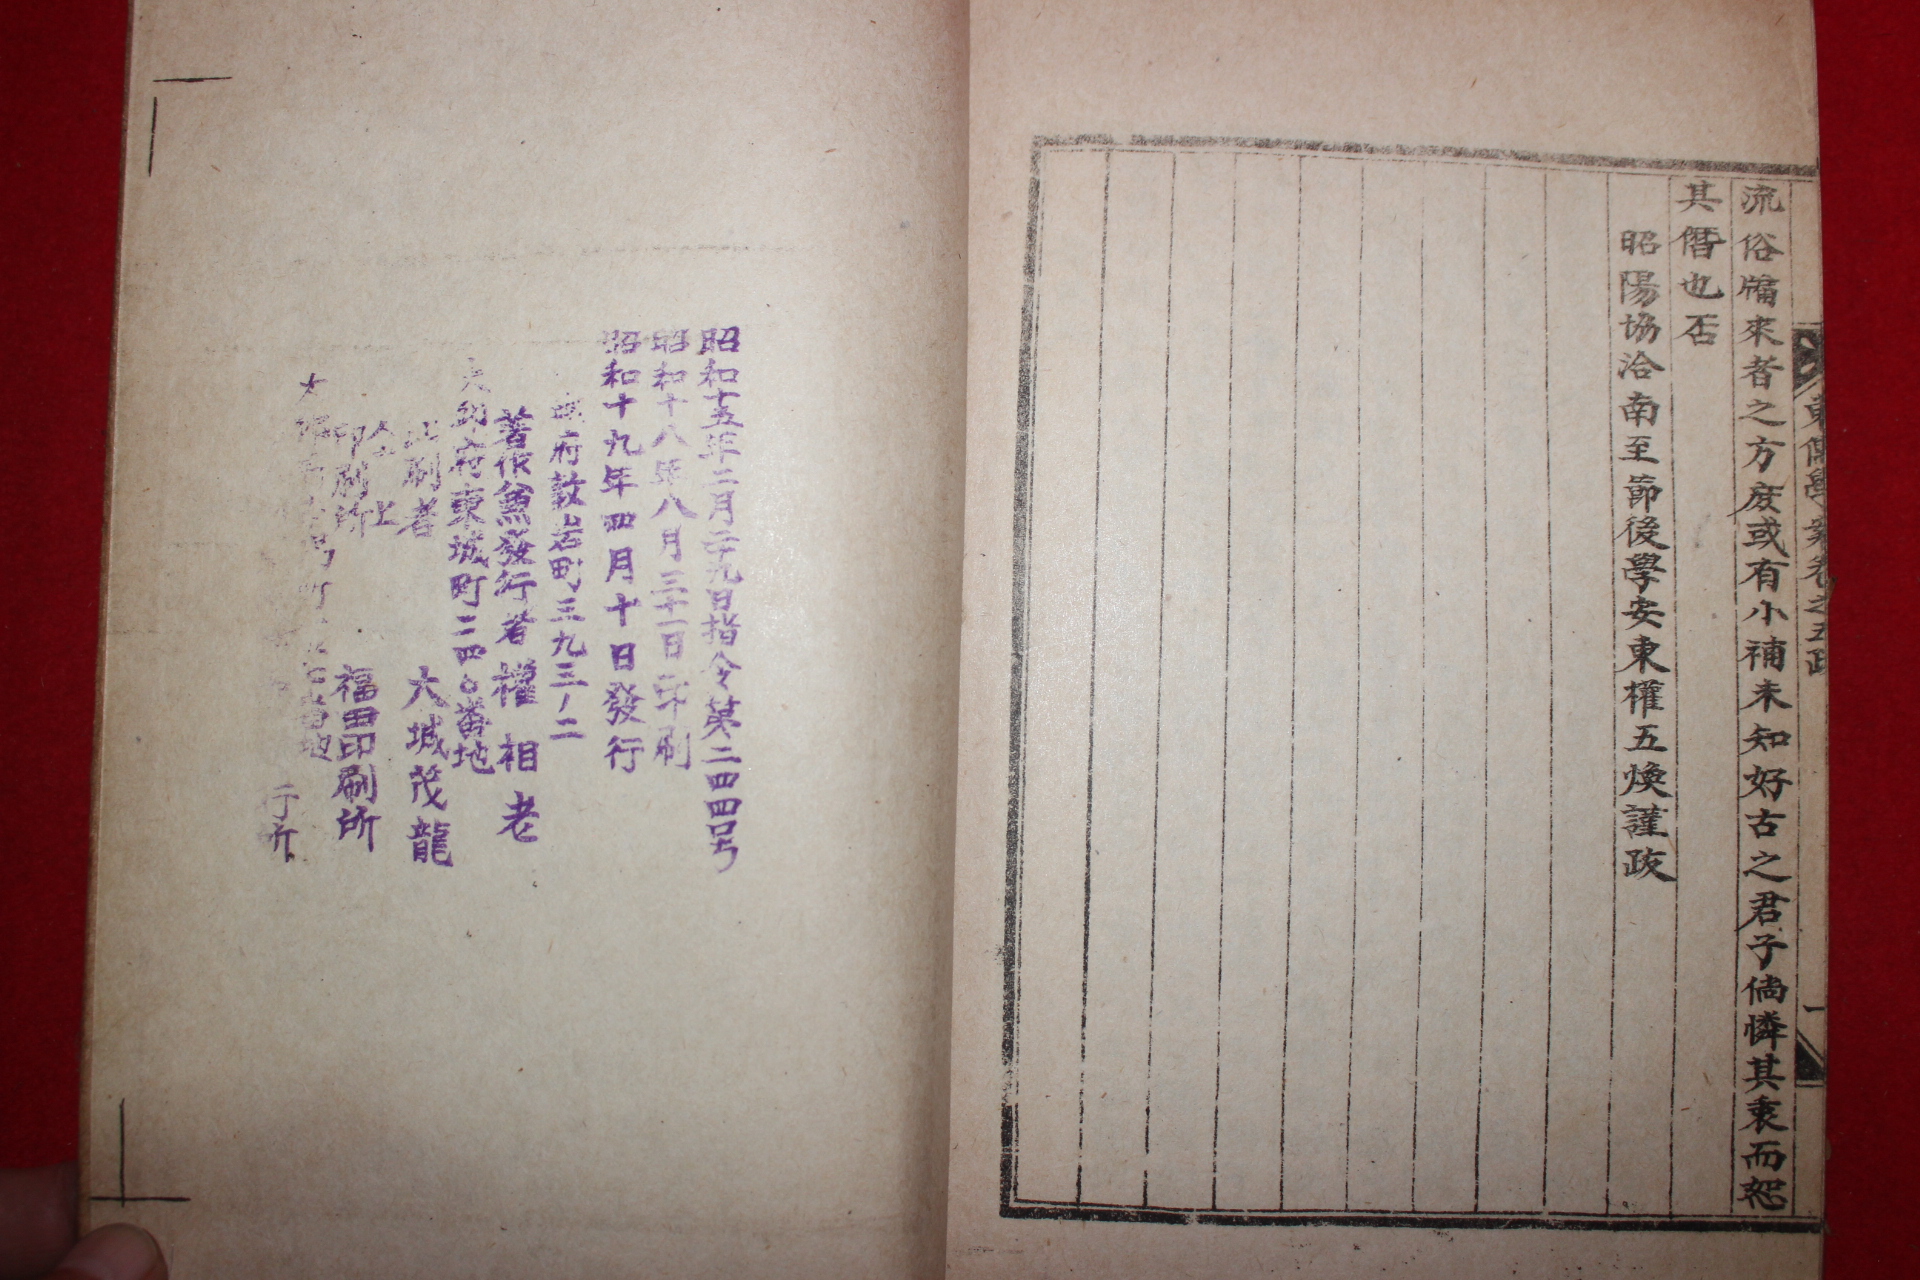 東儒學案卷之五跋
流俗牖來者之方庶或有小補未知好古之君子倘憐其衷而恕
其僭也否
昭陽協洽南至節後學安東權五煥謹跋
昭和十五年二月二十九日指令第二四四号
昭和十八年八月三十一日印刷
昭和十九年四月十日發行
府敦岩町三九三ノ二
著作兼發行者 權相老
大邱府東城町二四〇番地
印刷者 大城茂龍
仝上
印刷所 福田印刷所
町 番地
行所